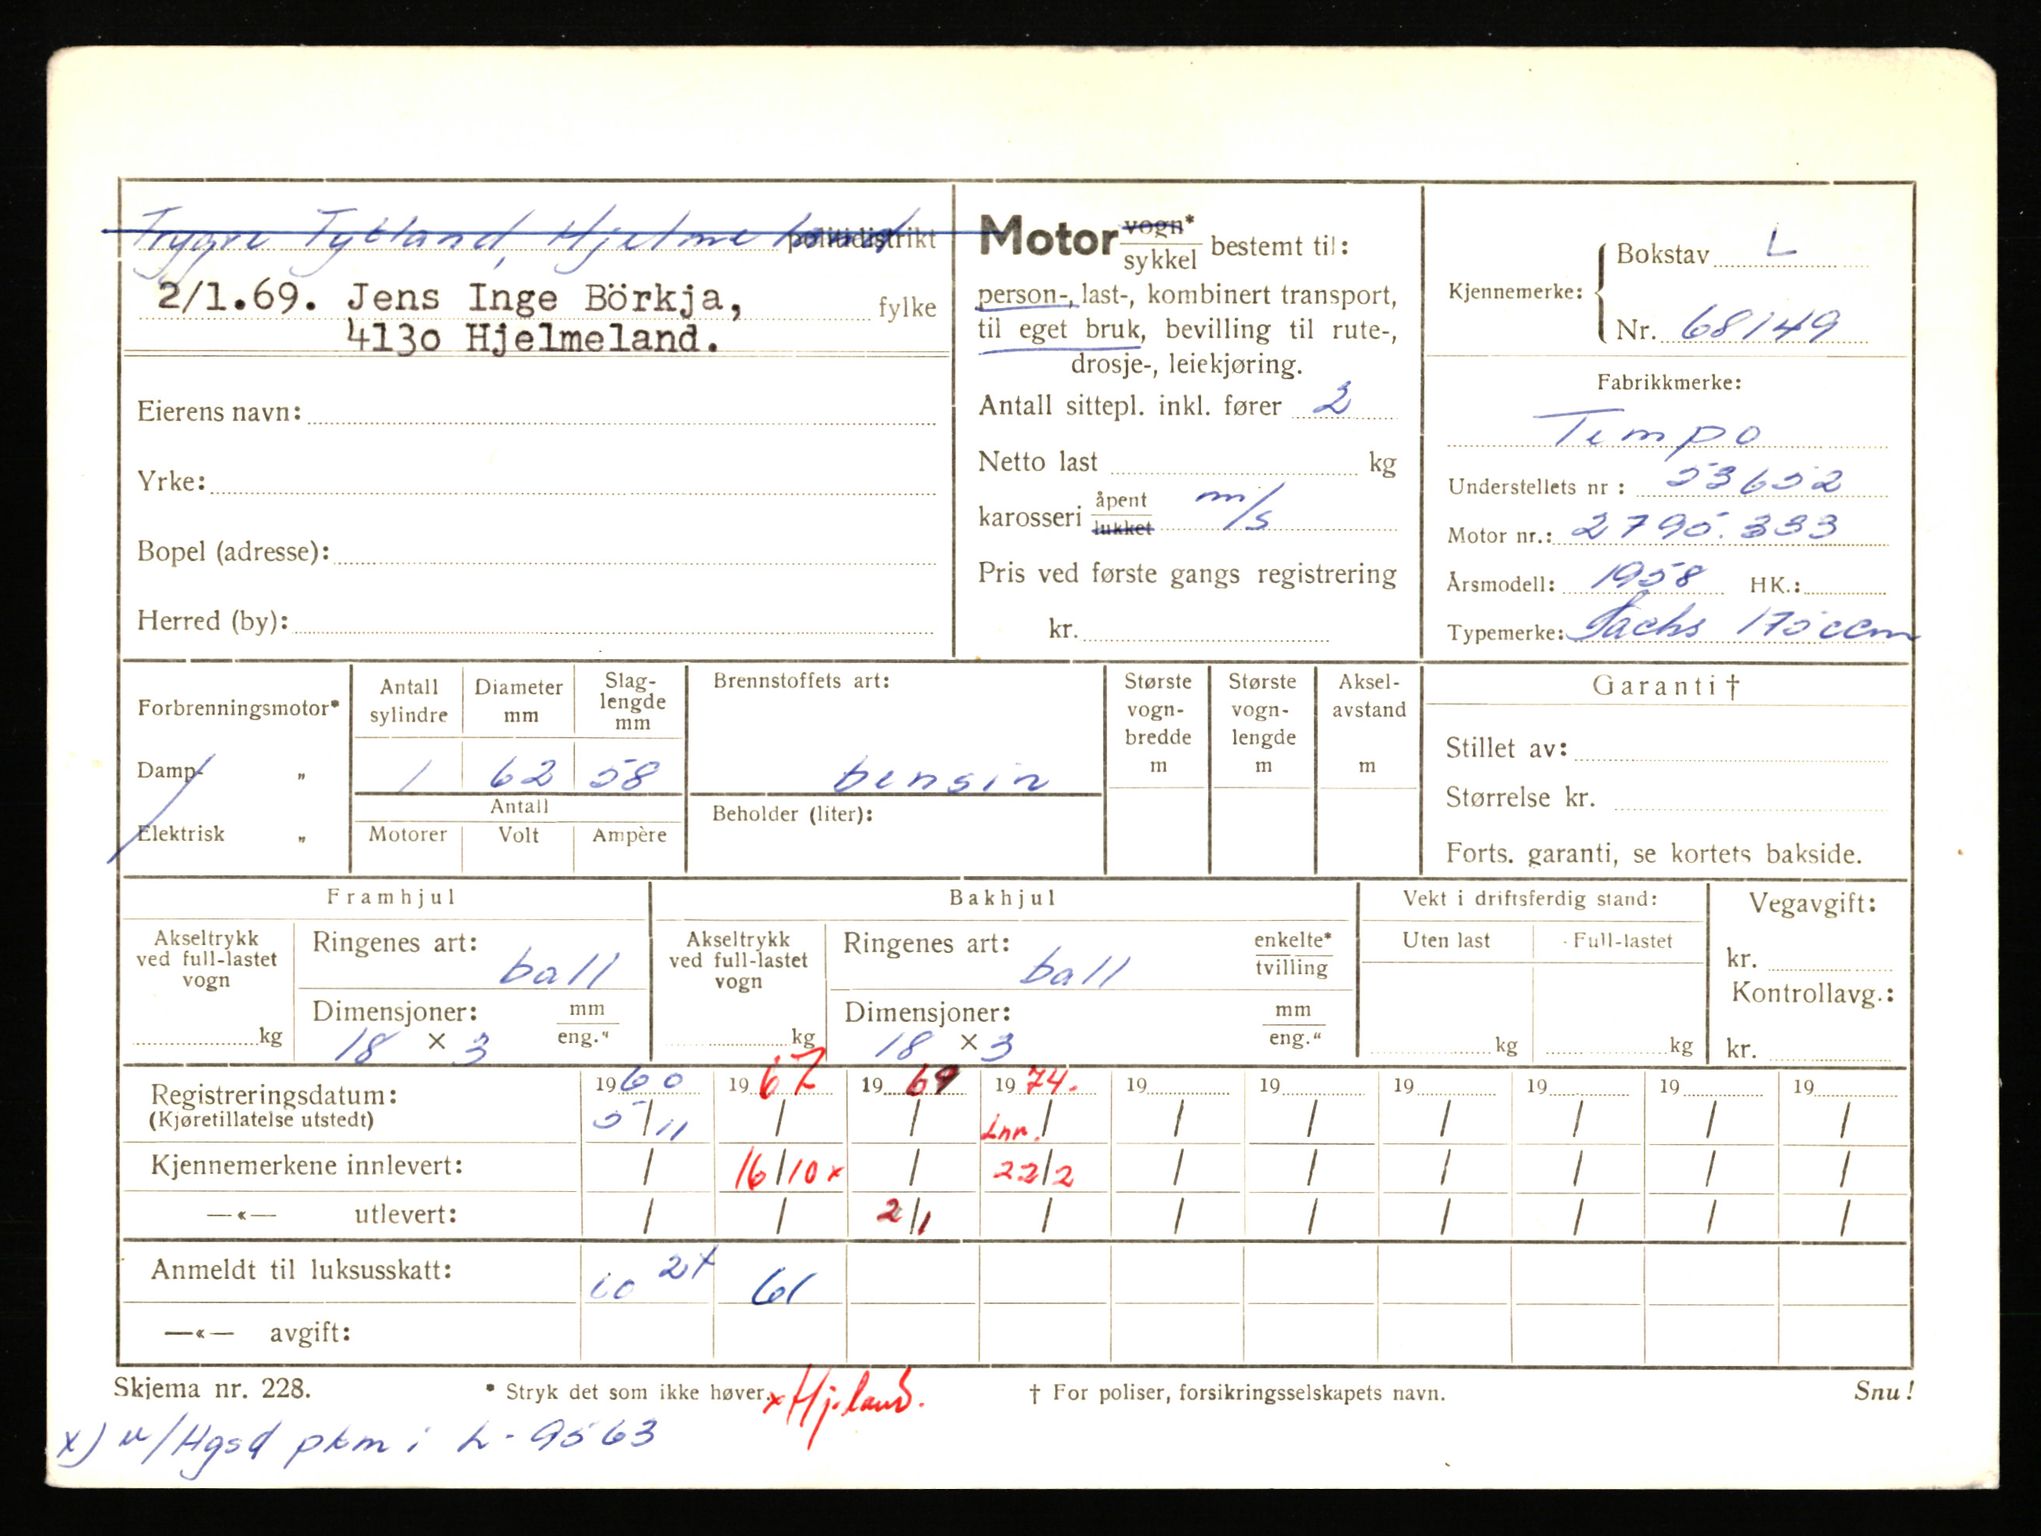 Trygve Tytland, Hjelmeland politidistrikt
2/1.69. Jens Inge Börkja, fylke
4130 Hjelmeland.
Eierens navn:
Yrke:
Bopel (adresse):
Herred (by):
Motor vogn* sykkel bestemt til:
person-, last-, kombinert transport,
til eget bruk, bevilling til rute-,
drosje-, leiekjøring.
Antall sittepl. inkl. fører 2
Netto last kg
karosseri åpent lukket m/s
Pris ved første gangs registrering
kr.
Kjennemerke: Bokstav L
Nr. 68149
Fabrikkmerke:
Tempo
Understellets nr : 53652
Motor nr.: 2795.333
Årsmodell: 1958 HK.:
Typemerke: Sachs 175 ccm
Forbrenningsmotor*
Damp- „
Elektrisk „
Antall sylindre Diameter mm Slag-lengde mm
1 62 58
Antall
Motorer Volt Ampère
Brennstoffets art:
bensin
Beholder (liter):
Største vogn-bredde m
Største vogn-lengde m
Aksel-avstand m
Garanti †
Stillet av:
Størrelse kr.
Forts. garanti, se kortets bakside.
Framhjul
Akseltrykk ved full-lastet vogn kg
Ringenes art: ball
Dimensjoner: mm eng."
18 × 3
Bakhjul
Akseltrykk ved full-lastet vogn kg
Ringenes art: ball enkelte* tvilling
Dimensjoner: mm eng."
18 × 3
Vekt i driftsferdig stand:
Uten last Full-lastet
kg kg
Vegavgift:
kr.
Kontrollavg.:
kr.
Registreringsdatum: 1960 1967 1969 1974. 19 19 19 19 19 19
(Kjøretillatelse utstedt) 5/11 / / Lnr. / / / / / / /
Kjennemerkene innlevert: / 16/10 x / 22/2 / / / / / /
—«— utlevert: / / 2/1 / / / / / / /
Anmeldt til luksusskatt: 60 2x 61
—«— avgift:
Skjema nr. 228. * Stryk det som ikke høver. x Hj.land. † For poliser, forsikringsselskapets navn. Snu!
x) u/Hgsd pkm i L- 9563